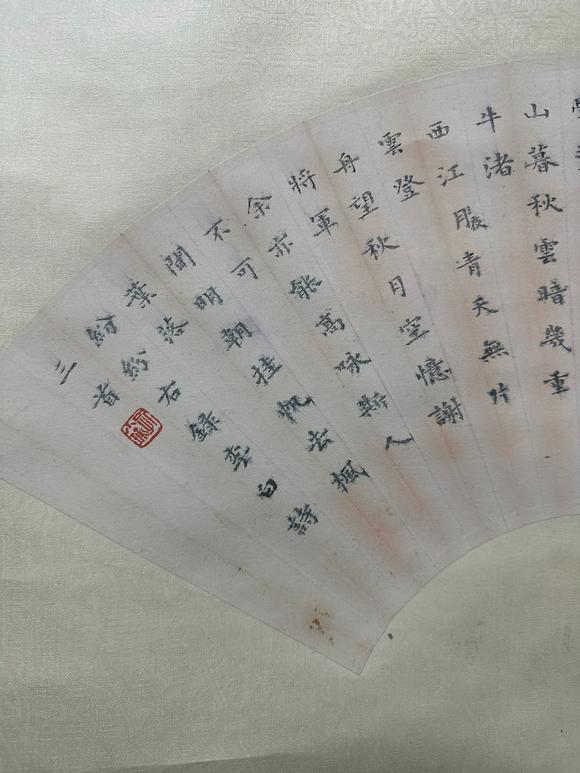 山暮秋雲暗幾重
牛渚
西江夜青天無片
雲登
舟望秋月空憶謝
將軍
余亦能高詠斯人
不可
聞明朝挂帆去楓
葉落
紛紛右錄李白詩
三首